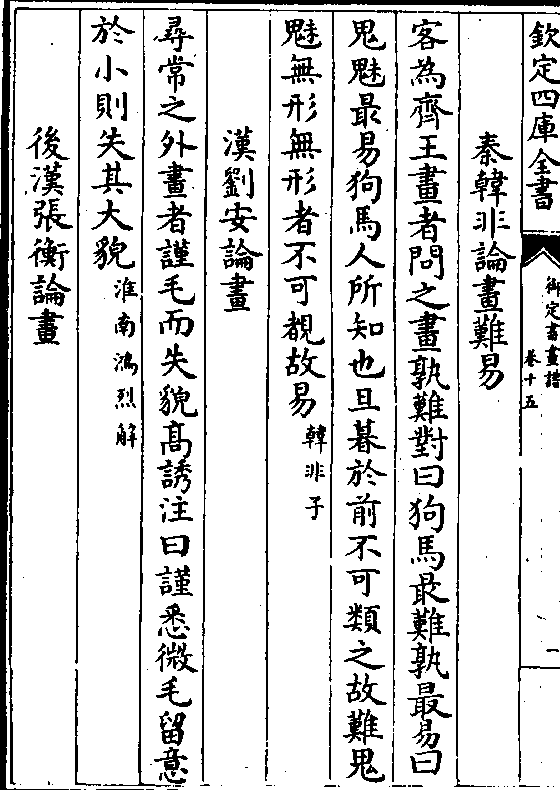 欽定四庫全書
御定書畫譜
卷十五
一
秦韓非論畫難易
客為齊王畫者問之畫孰難對曰狗馬最難孰最易曰
鬼魅最易狗馬人所知也旦暮於前不可類之故難鬼
魅無形無形者不可覩故易韓非子
漢劉安論畫
尋常之外畫者謹毛而失貌高誘注曰謹悉微毛留意
於小則失其大貌淮南鴻烈解
後漢張衡論畫